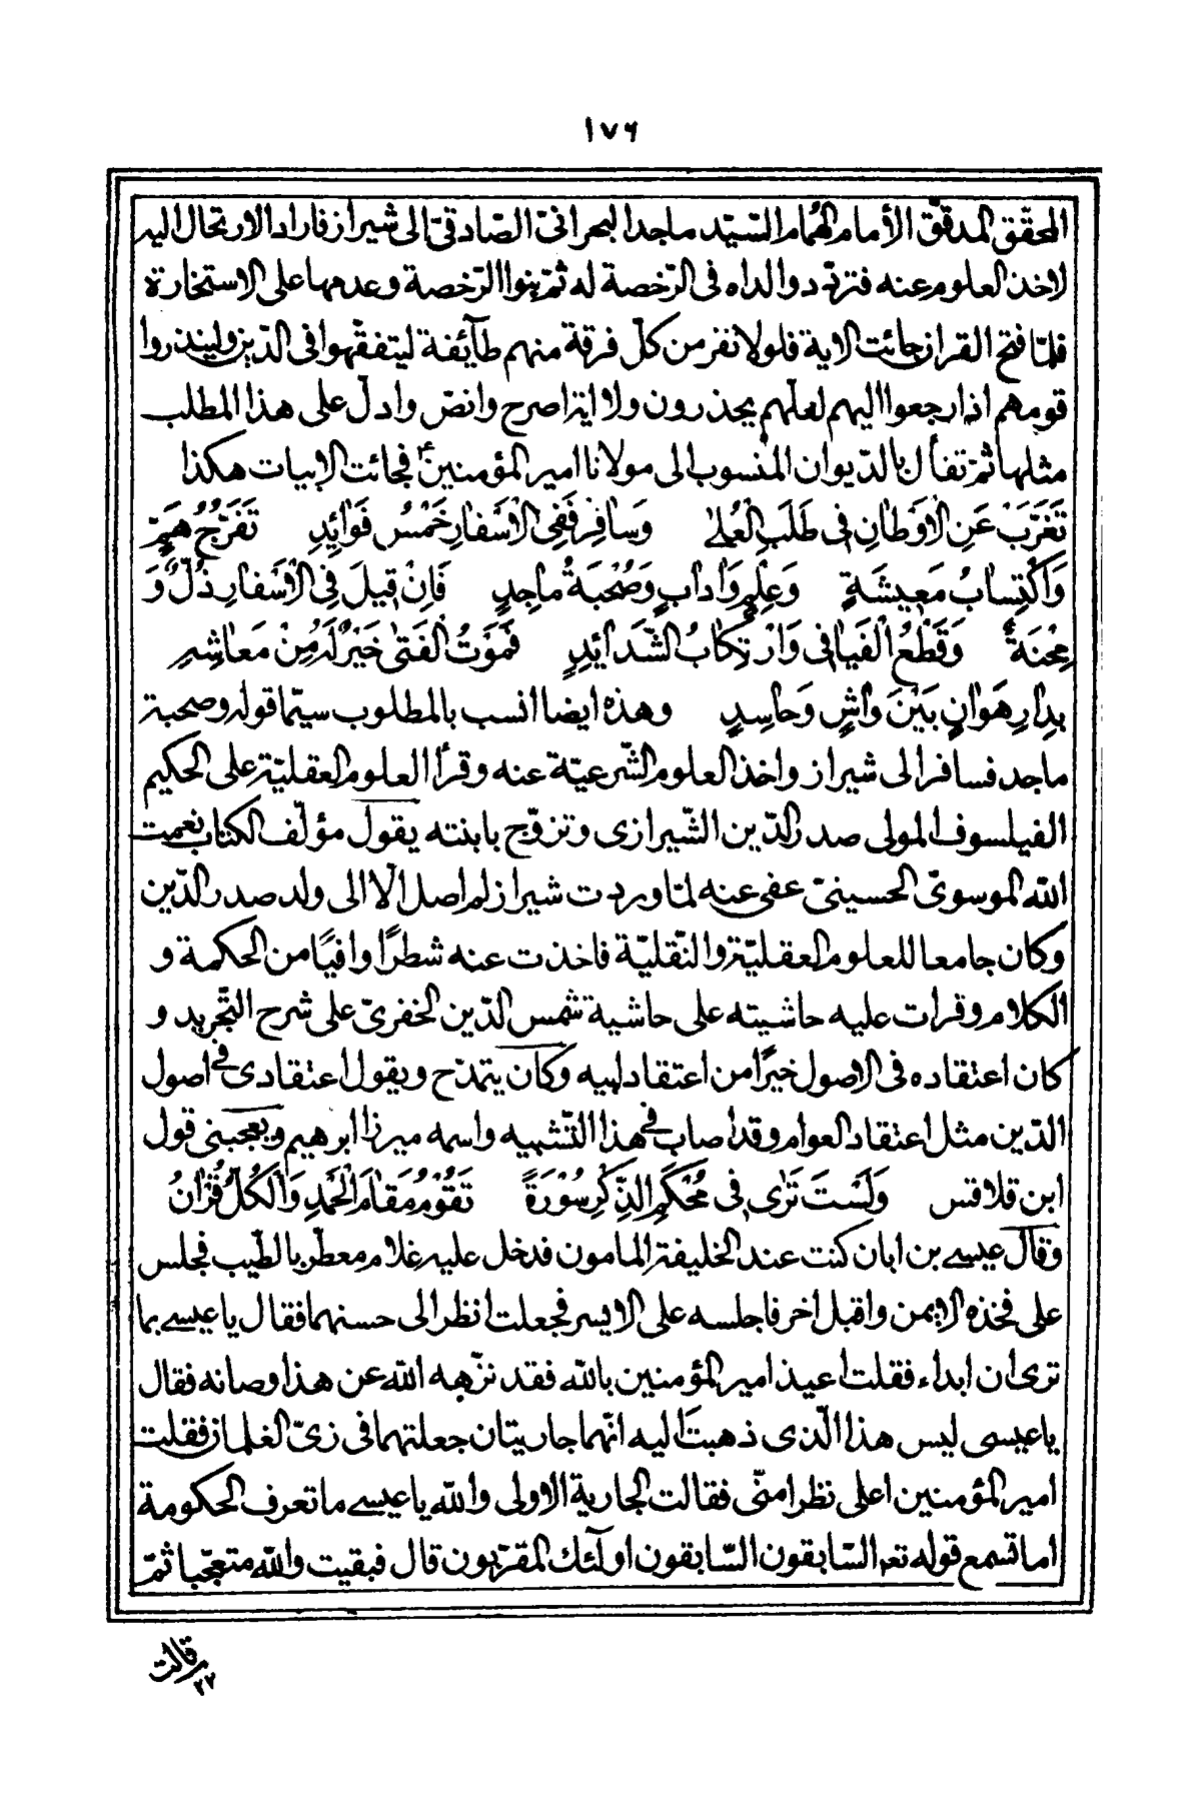 ١٧٦
المحقّق المدقّق الأمام الهُمام السّيّد ماجد البحرانىّ الصّادقىّ الى شيراز فاراد الارتحال اليه
لاخذ العلوم عنه فتردّد والداه فى الرّخصة له ثمّ بنوا الرّخصة وعدمها على الاستخارة
فلمّا فتح القران جائت الاية فلولا نفر من كلّ فرقة منهم طآئفة ليتفقّهوا فى الدّين ولينذروا
قومهم اذا رجعوا اليهم لعلّهم يحذرون ولا اية اصرح وانصّ وادلّ على هذا المطلب
مثلها ثمّ تفأل بالدّيوان المنسوب الى مولانا امير المؤمنين ع فجائت الابيات هكذا
تَغَرَّبْ عَنِ الْاَوْطانِ فى طَلَبِ الْعُلىٰ وَسافِرْ فَفِى الْاَسْفارِ خَمْسُ فَوائِدِ تَفَرُّجُ هَمٍّ
وَاكْتِسابُ مَعيشَةٍ وَعِلْمٌ وَادابٌ وَصُحْبَةُ ماجِدٍ فَاِنْ قيلَ فِى الْاَسْفارِ ذُلٌّ وَ
مِحْنَةٌ وَقَطْعُ الْفَيافى وَارْتِكابُ الشَّدائِدِ فَمَوْتُ الْفَتىٰ خَيْرٌ لَهُ مِنْ مَعاشِهِ
بِدارِ هَوانٍ بَيْنَ واشٍ وَحاسِدٍ وهذه ايضا انسب بالمطلوب سيّما قوله وصحبة
ماجد فسافر الى شيراز واخذ العلوم الشّرعيّة عنه وقرأ العلوم العقليّة على الحكيم
الفيلسوف المولى صدر الدّين الشّيرازى وتزوّج بابنته يقول مؤلّف الكتاب نعمت
الله الموسوىّ الحسينىّ عفى عنه لمّا وردت شيراز لم اصل الّا الى ولد صدر الدّين
وكان جامعا للعلوم العقليّة والنّقليّة فاخذت عنه شطرًا وافيًا من الحكمة و
الكلام وقرات عليه حاشيته على حاشية شمس الدّين الخفرىّ على شرح التّجريد و
كان اعتقاده فى الاصول خيرًا من اعتقاد ابيه وكان يتمدّح ويقول اعتقادى فى اصول
الدّين مثل اعتقاد العوام وقد اصاب فى هذا التّشبيه واسمه ميرزا ابرهيم ويعجبنى قول
ابن قلاقس وَلَسْتَ تَرىٰ فى مُحْكَمِ الذِّكْرِ سُوْرَةً تَقُوْمُ مَقامَ الْحَمْدِ وَالْكُلُّ قُرْانُ
وقال عيسى بن ابان كنت عند الخليفة المامون فدخل عليه غلام معطّر بالطّيب فجلس
على فخذه الايمن واقبل اخر فاجلسه على الايسر فجعلت انظر الى حسنهما فقال يا عيسى بما
ترى ان ابداء فقلت اعيذ امير المؤمنين بالله فقد نزّهه الله عن هذا وصانه فقال
يا عيسى ليس هذا الّذى ذهبتَ اليه انّهما جاريتان جعلتهما فى زىّ الغلمان فقلت
امير المؤمنين اعلى نظرا منّى فقالت الجارية الاولى والله يا عيسى ما تعرف الحكومة
اما تسمع قوله تعه السّابقون السّابقون اولٓئك المقرّبون قال فبقيت والله متعجّبا ثمّ
قالت
٢٢